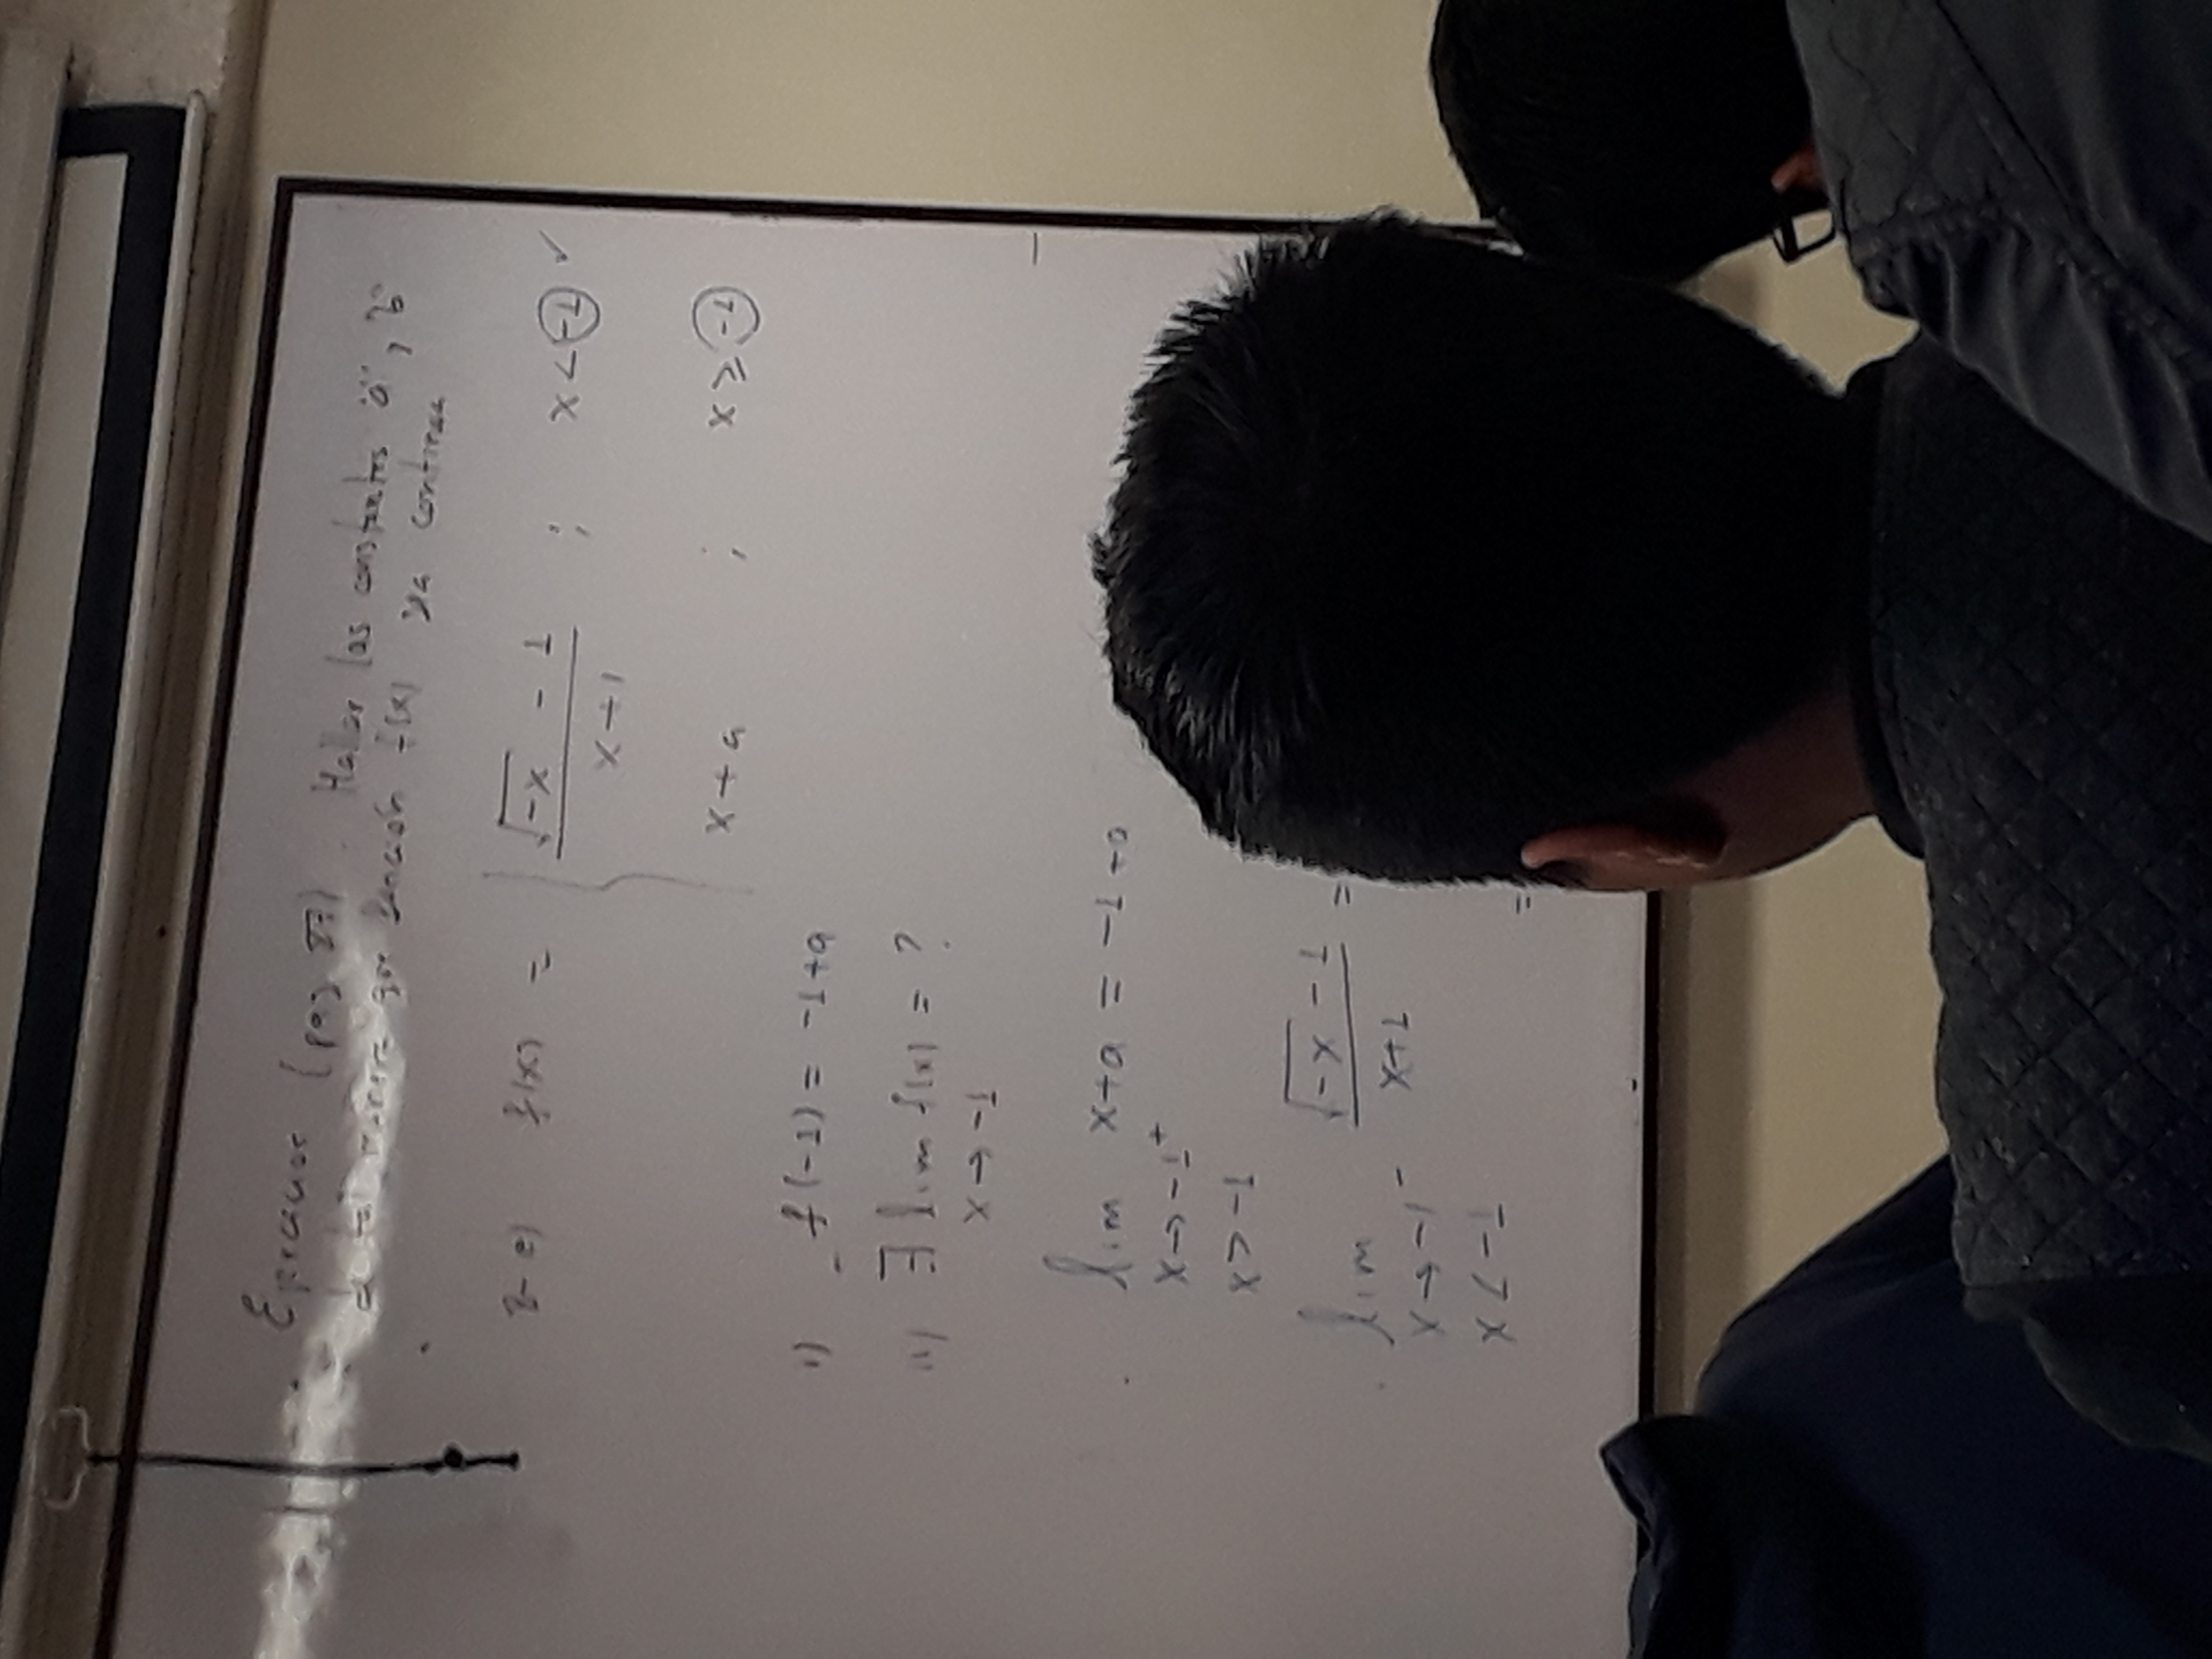 Ejercicios (pag 27). Hallar las constantes "a", "b"
de tal manera que función f(x) sea continua
2- e) f(x) = { (√-x - 1)/(x+1) ; x < -1 ✓
x + a ; x ≥ -1
i) f(-1) = -1+a
ii) ∃ lim f(x) = ?
x → -1
lim x+a = -1+a
x → -1⁺
x > -1
lim (√-x - 1)/(x+1) =
x → -1⁻
x < -1
=